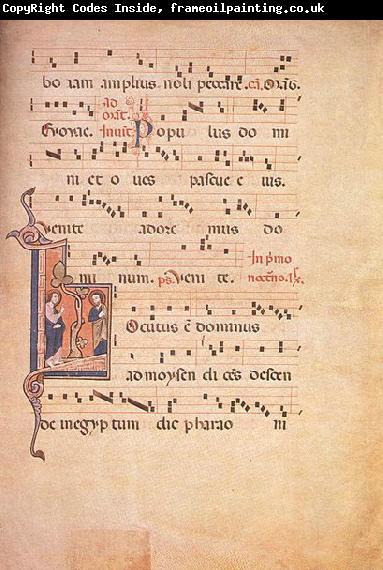 CopyRight Codes Inside, frameoilpainting.co.uk
bo ram amplius noli peccare.
ad
orat.
Evovae. Inuit Popu lus do mi
ni et o ves pascue e ius.
Venite adore mus do
mi num. ps. Veni te.
In p̄mo
Ocutus ē dominus
ad moysen di cēs descen
de in egyp tum dic pharao ni